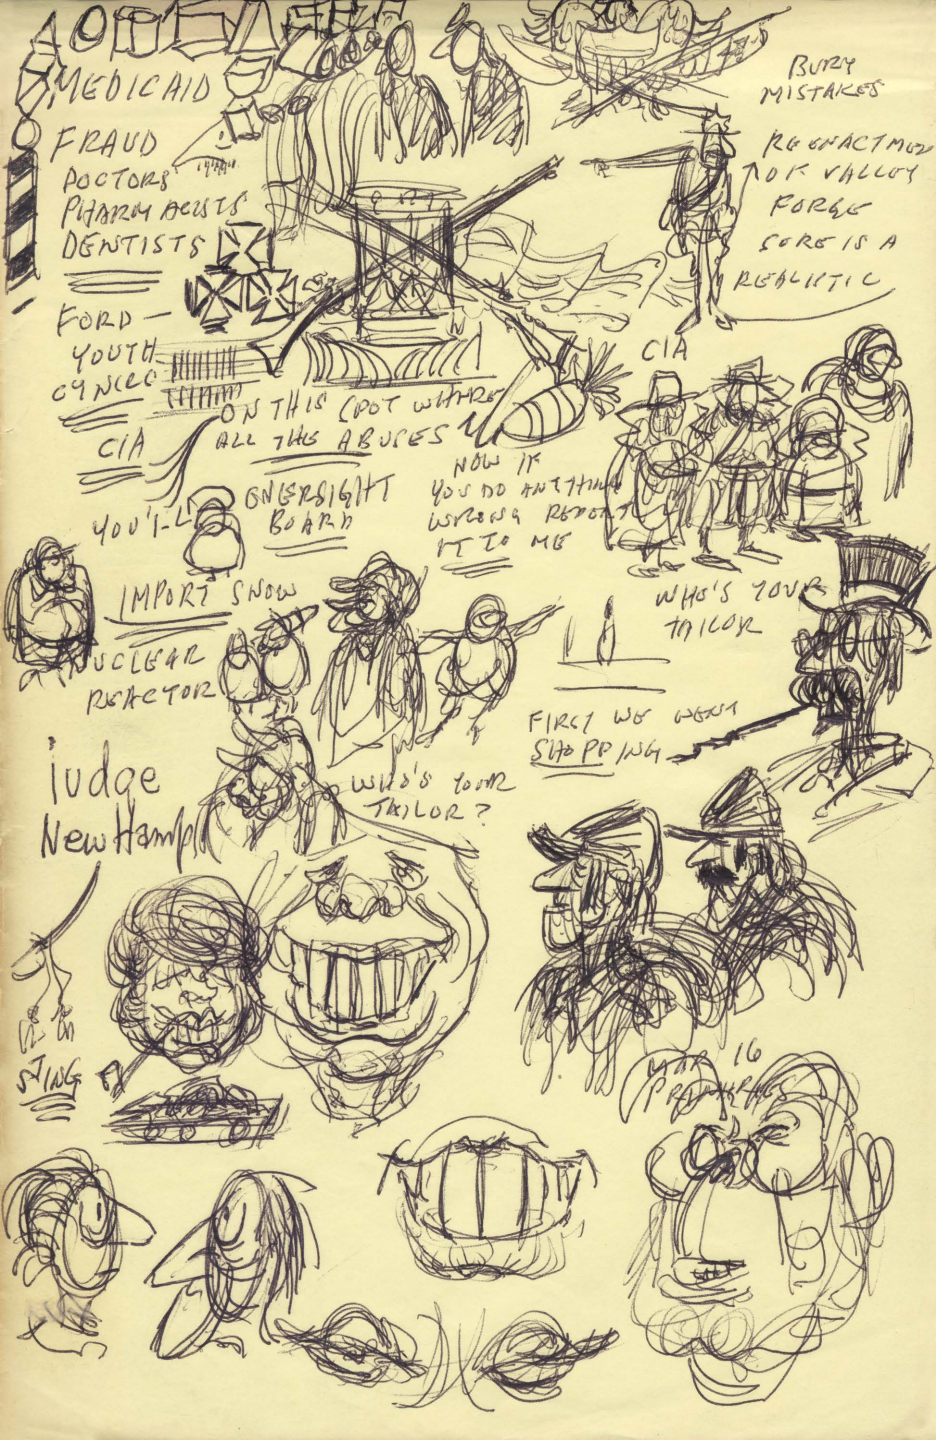 MEDICAID
FRAUD
DOCTORS
PHARMACISTS
DENTISTS
FORD—
YOUTH
CIA
BURY
MISTAKES
REENACTMEN
OF VALLEY
FORGE
SORE IS A
REALISTIC
ON THIS SPOT WHERE
ALL THE ABUSES
CIA
YOU'LL
OVERSIGHT
BOARD
NOW IF
YOU DO ANYTHING
WRONG REPORT
IT TO ME
IMPORT SNOW
NUCLEAR
REACTOR
WHO'S YOUR
TAILOR
FIRST WE WENT
SHOPPING
WHO'S YOUR
TAILOR?
judge
New Hamp
STING
MAR 16
PRIMARIES